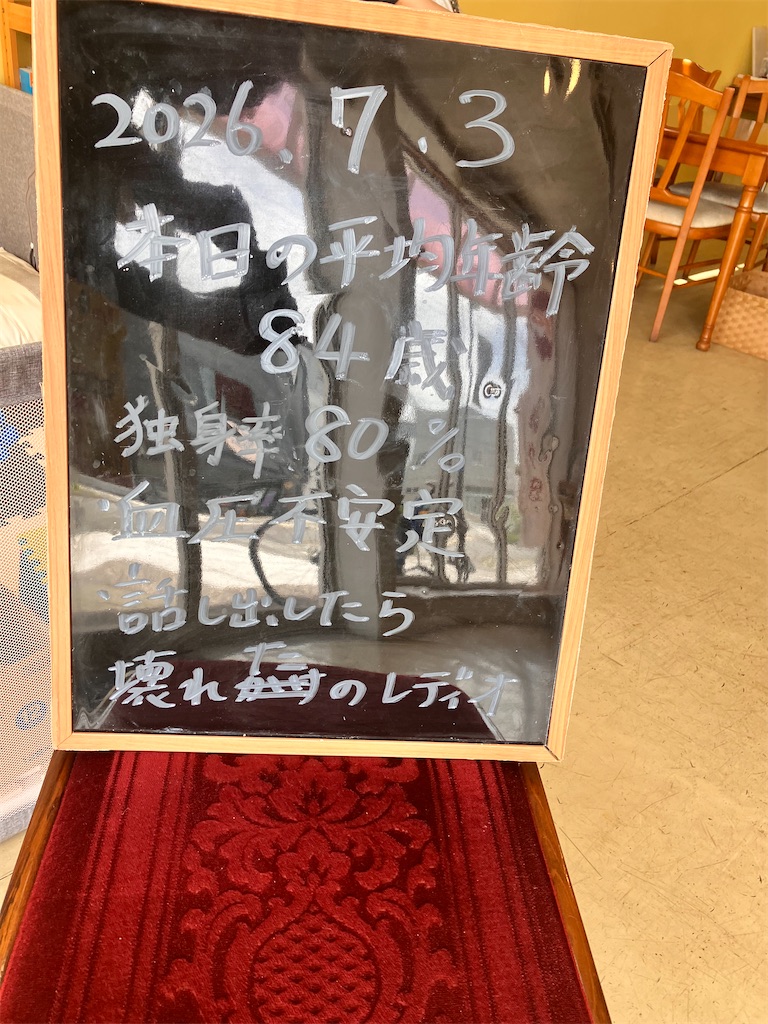 2026.7.3
本日の平均年齢
84歳
独身率80%
血圧不安定
話し出したら
壊れたのレディオ